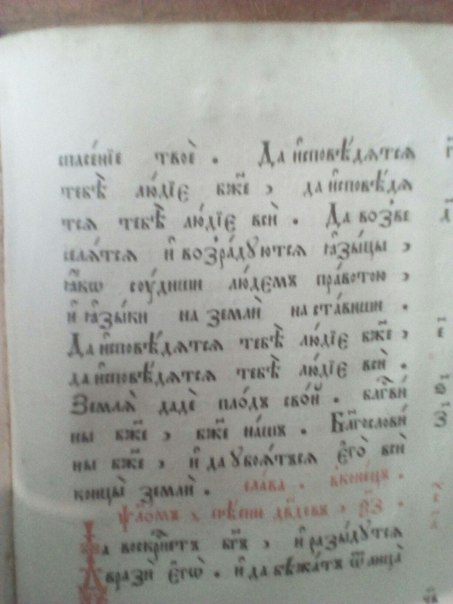 спасе́нїе твоѐ . Да и҆сповѣ́дѧтсѧ
тебѣ̀ лю́дїє бж҃е , да и҆сповѣ́дѧ
тсѧ тебѣ̀ лю́дїє всѝ . Да возве
селѧ́тсѧ и҆ возра́дуютсѧ ꙗ҆зы́цы ,
ꙗ҆́кѡ сѹ́диши лю́демъ пра́вотою ,
и҆ ꙗ҆зы́ки на землѝ наста́виши .
Да и҆сповѣ́дѧтсѧ тебѣ̀ лю́дїє бж҃е ,
да и҆сповѣ́дѧтсѧ тебѣ̀ лю́дїє всѝ .
Землѧ̀ дадѐ пло́дъ сво́й . блг҃ви́
ны бж҃е , бж҃е на́шъ . Бл҃гослови́
ны бж҃е , и҆ да убоѧ́тьсѧ є҆гѡ̀ всѝ
концы̀ землѝ . слава . вконе́цъ .
ѱало́мъ , пѣ́сни дв҃довъ , ѯ҃з .
Да воскрⷭ҇нетъ бг҃ъ , и҆ разы́дутсѧ
вразѝ є҆гѡ̀ . и҆ да бѣжа́тъ ѿлица̀